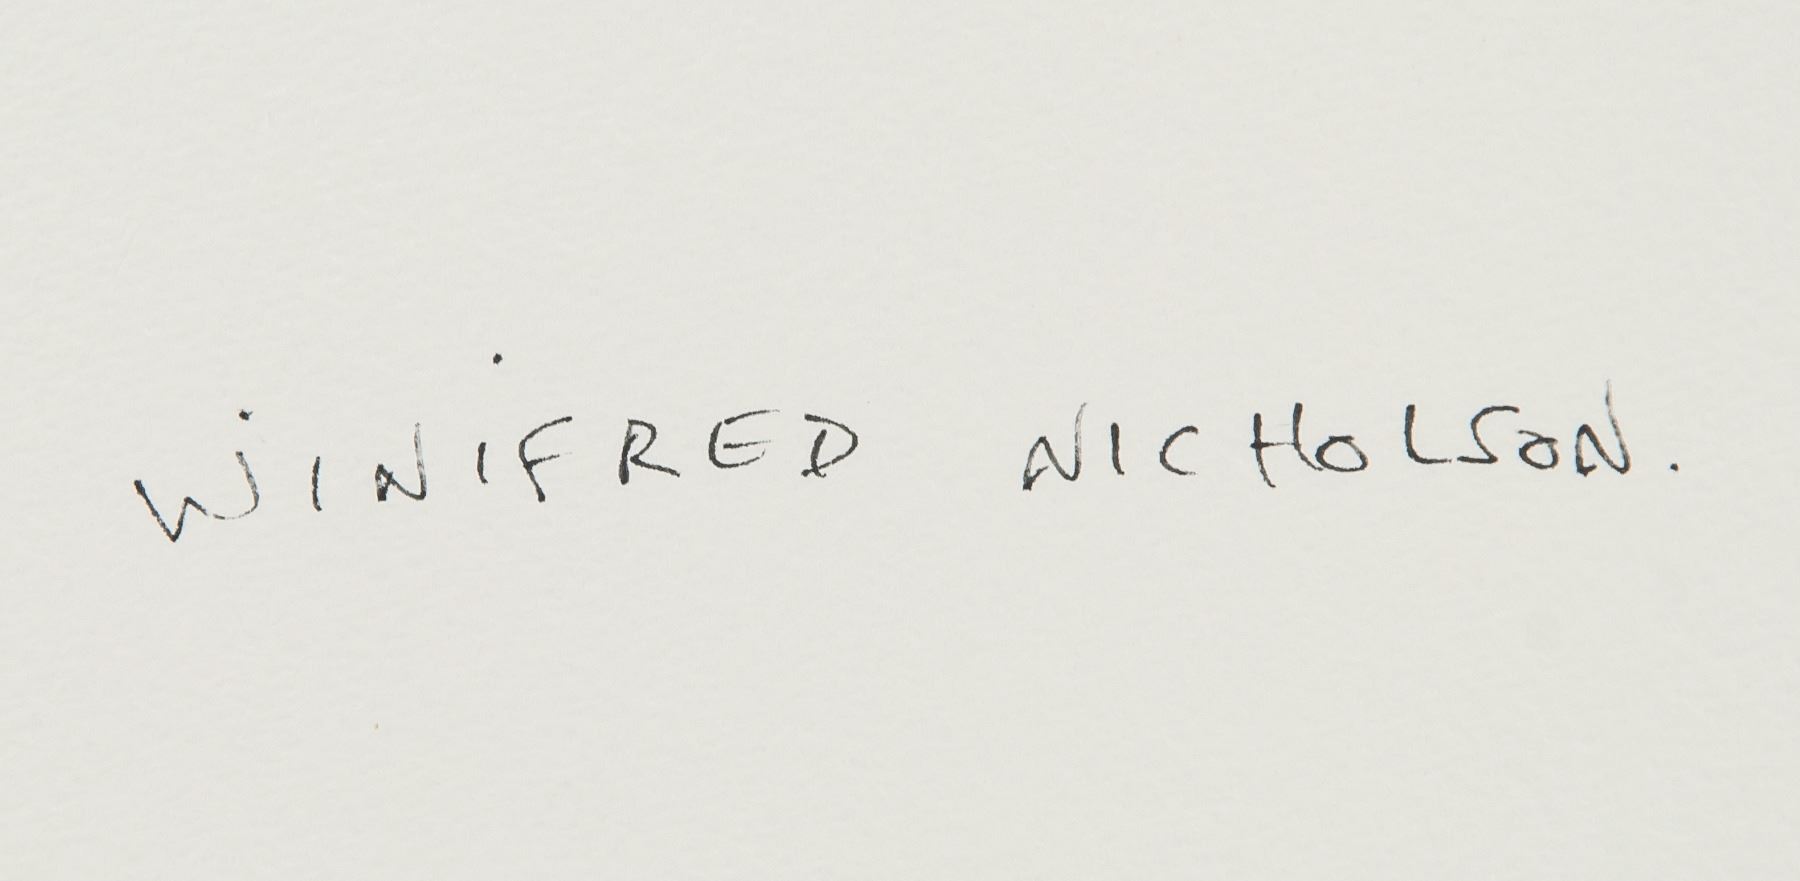 WINIFRED NICHOLSON.